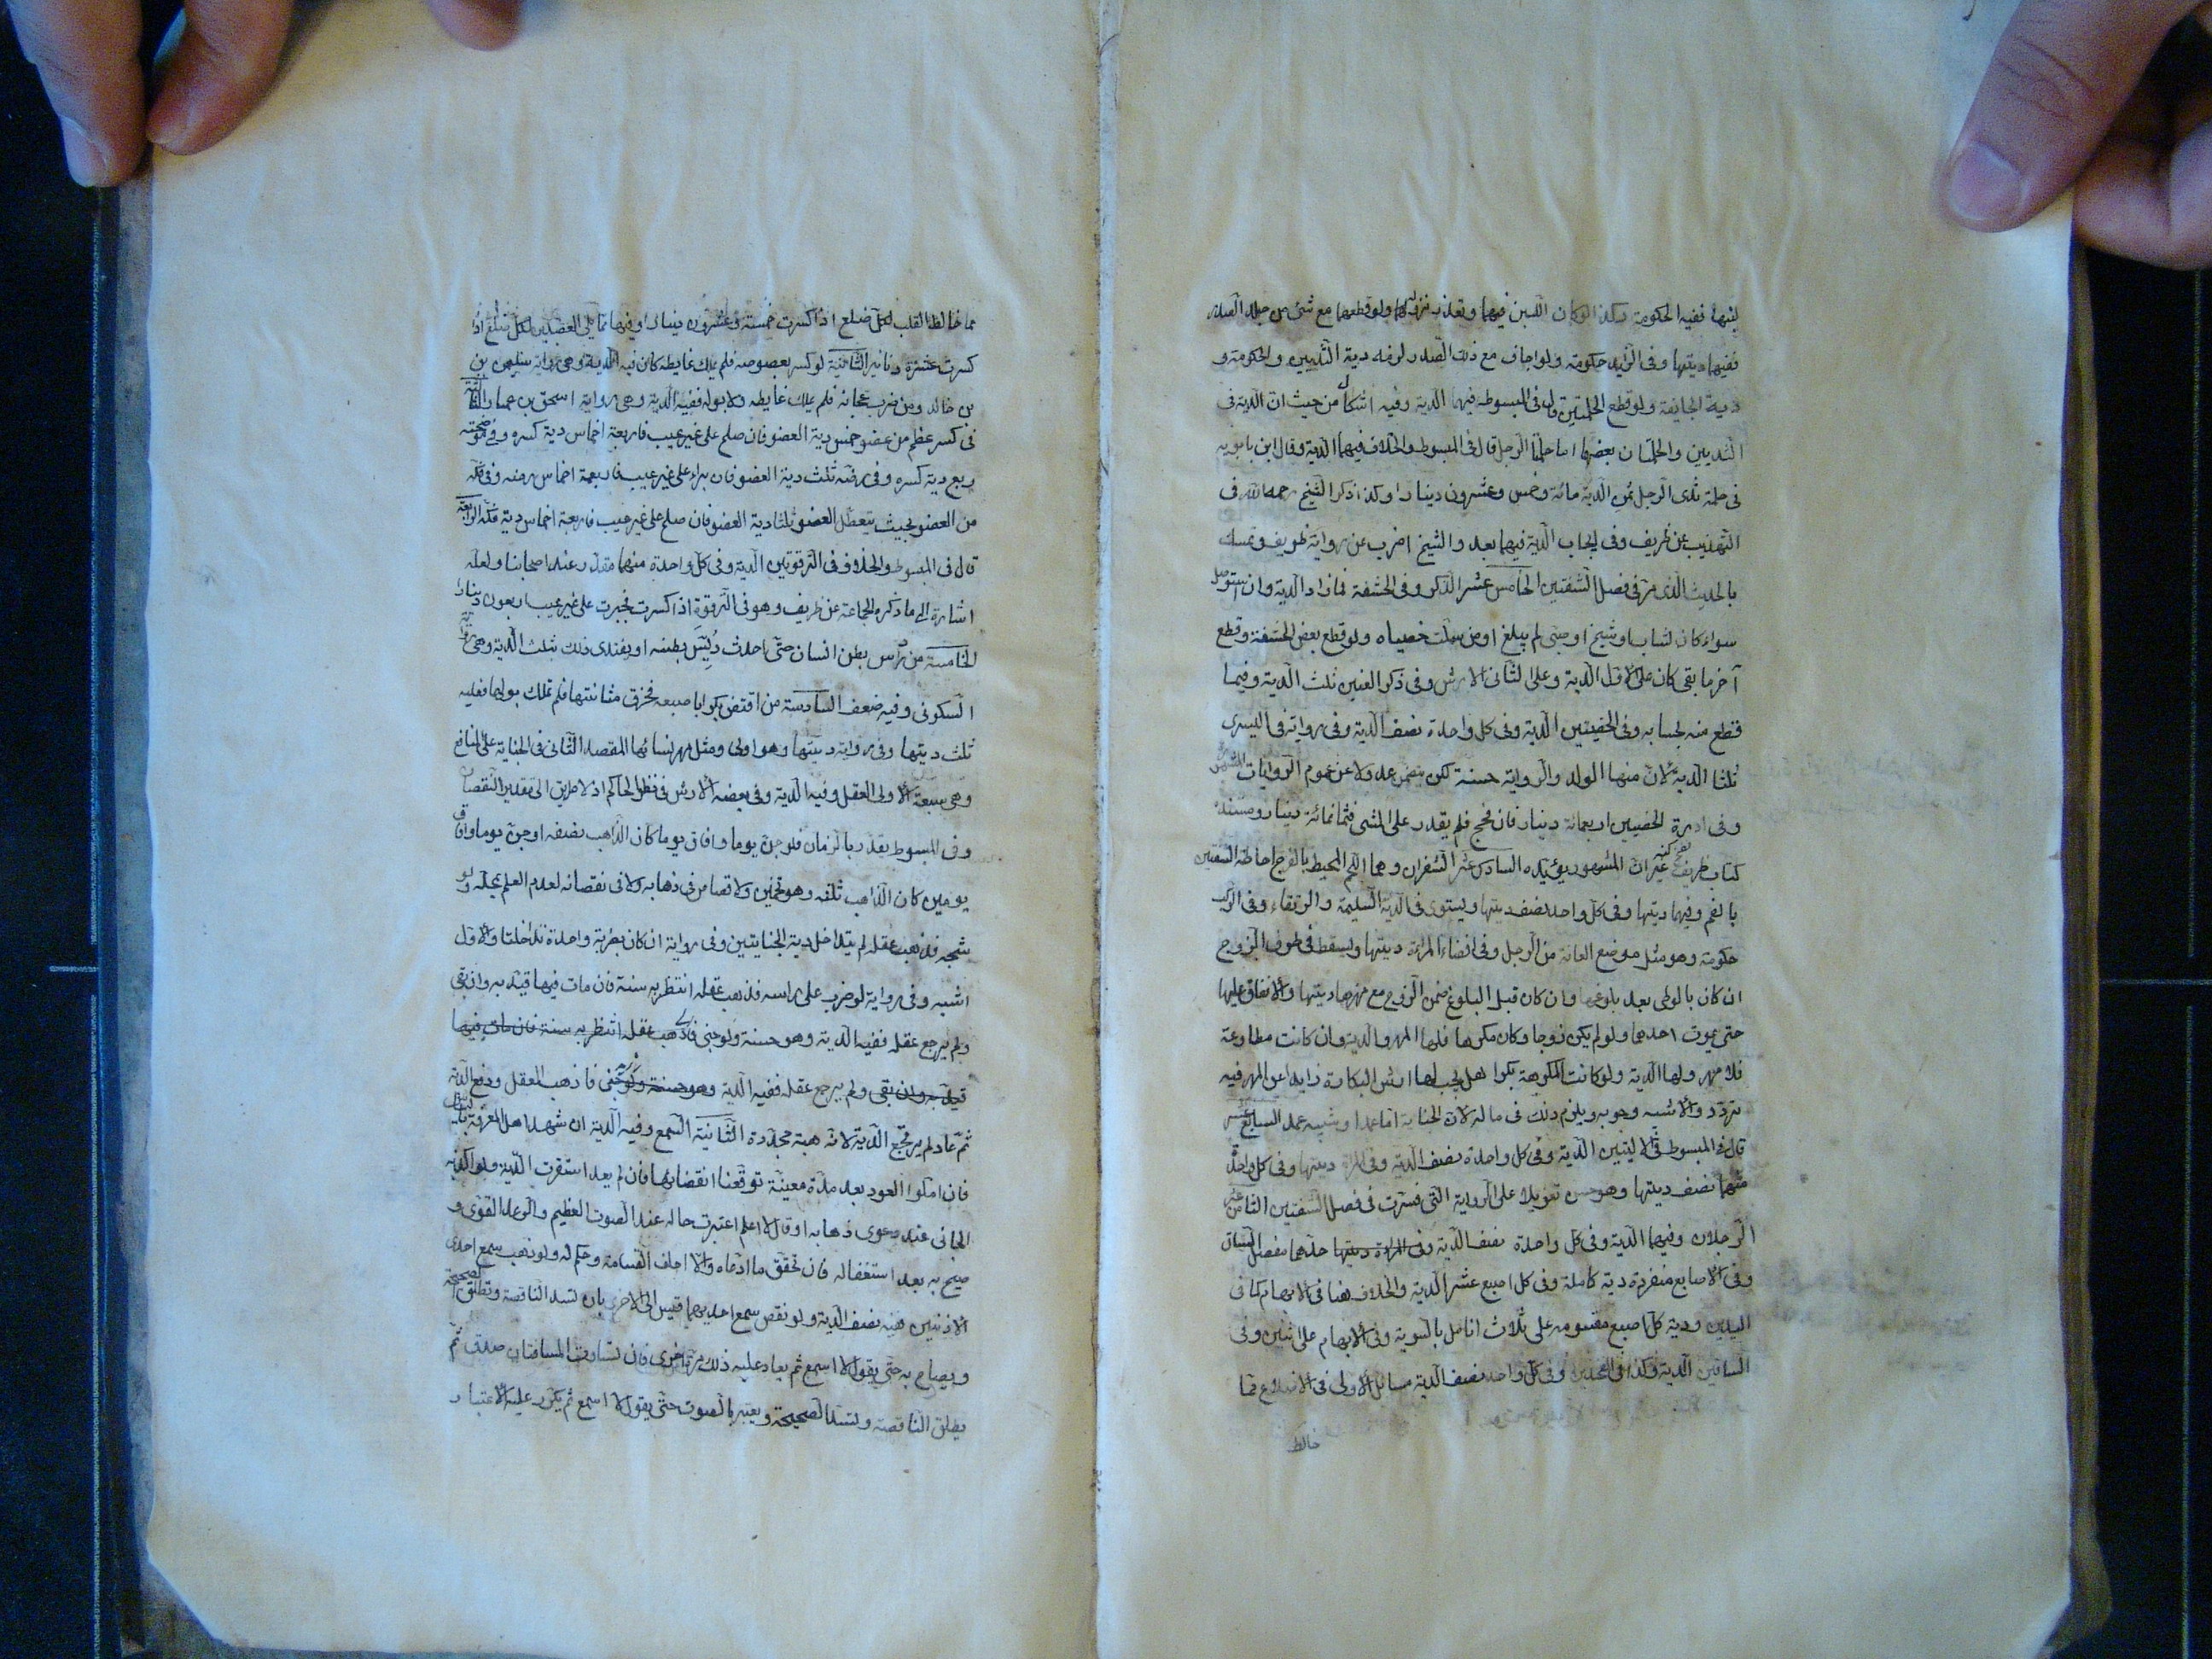 لبنها ففيه الحكومة وكذا لو كان اللبن فيهما وتعذر نزوله ولو قطعهما مع شئ من جلد الصدر
ففيهما ديتها وفى الزايد حكومة ولو اجاف مع ذلك الصدر لزمه دية الثديين والحكومة و
دية الجايفة ولو قطع الحلمتين قال فى المبسوط فيهما الدية وفيه اشكال من حيث ان الدية فى
الثديين والحلمتان بعضهما اما حلمتا الرجل قال فى المبسوط والخلاف فيهما الدية وقال ابن بابويه
فى حلمة ثدى الرجل ثمن الدية مائة وخمس وعشرون دينارا وكذا ذكر الشيخ رحمه الله فى
التهذيب عن ظريف وفى ايجاب الدية فيهما بعد والشيخ اضرب عن رواية ظريف وتمسك
بالحديث الذى مر فى فصل الشفتين الخامس عشر الذكر وفى الحشفة فمازاد الدية وان استوصل
سواء كان لشاب او شيخ او صبى لم يبلغ او من سلت خصياه ولو قطع بعض الحشفة وقطع
آخر ما بقى كان على الاول الدية وعلى الثانى الارش وفى ذكر العنين ثلث الدية وفيما
قطع منه بحسابه وفى الخصيتين الدية وفى كل واحدة نصف الدية وفى رواية فى اليسرى
ثلثا الدية لان منها الولد والرواية حسنة لكن تتضمن عدولا عن عموم الروايات المشهورة
وفى ادرة الخصيتين اربعمائة دينار فان فحج فلم يقدر على المشى فثمانمائة دينار ومستنده
كتاب ظريف غير ان المشهور يؤيده السادس عشر الشفران وهما اللحم المحيط بالفرج احاطة الشفتين
بالفم وفيهما ديتها وفى كل واحد نصف ديتها ويستوى فى الدية السليمة والرتقاء وفى الركب
حكومة وهو مثل موضع العانة من الرجل وفى افضاء المراة ديتها ويسقط فى طرف الزوج
ان كان بالوطى بعد بلوغها وان كان قبل البلوغ ضمن الزوج مع مهرها ديتها والانفاق عليها
حتى يموت احدهما ولو لم يكن زوجا وكان مكرها فلها المهر والدية وان كانت مطاوعة
فلا مهر ولها الدية ولو كانت المكرهة بكرا هل يجب لها ارش البكارة زايدا عن المهر فيه
تردد والاشبه وجوبه ويلزم ذلك فى ماله لان الجناية اما عمدا وشبيه عمد السابع عشر
قال فى المبسوط فى الاليتين الدية وفى كل واحدة نصف الدية وفى المراة ديتها وفى كل واحدة
منهما نصف ديتها وهو حسن تعويلا على الرواية التى فسرت فى فصل الشفتين الثامن عشر
الرجلان وفيهما الدية وفى كل واحدة نصف الدية وفى المراة ديتها حدهما مفصل الساق
وفى الاصابع منفردة دية كاملة وفى كل اصبع عشر الدية والخلاف هنا فى الابهام كما فى
اليدين ودية كل اصبع مقسومه على ثلاث انامل بالسوية وفى الابهام على اثنين وفى
الساقين الدية وكذا فى الفخذين وفى كل واحد نصف الدية مسائل الاولى فى الاضلاع مما
خالط
مما خالط القلب لكل ضلع اذا كسرت خمسة وعشرون دينارا وفيها مما يلى العضدين لكل ضلع اذا
كسرت عشرة دنانير الثانية لو كسر بعصوصه فلم يملك غايطه كان فيه الدية وهى رواية سليمن بن
بن خالد ومن ضرب عجانه فلم يملك غايطه ولا بوله ففيه الدية وهى رواية اسحق بن عمار الثالثة
فى كسر عظم من عضو خمس دية العضو فان صلح على غير عيب فاربعة اخماس دية كسره وفى موضحته
ربع دية كسره وفى رضه ثلث دية العضو فان براء على غير عيب فاربعة اخماس رضه وفى فكه
من العضو بحيث يتعطل العضو ثلثا دية العضو فان صلح على غير عيب فاربعة اخماس دية فكه الرابعة
قال فى المبسوط والخلاف فى الترقوتين الدية وفى كل واحدة منهما مقدر عند اصحابنا ولعله
اشارة الى ما ذكره الجماعة عن ظريف وهو فى الترقوة اذا كسرت فجبرت على غير عيب اربعون دينارا
الخامسة من داس بطن انسان حتى احدث ديس بطنه او يفتدى ذلك بثلث الدية وهى رواية
السكونى وفيه ضعف السادسة من اقتض بكرا باصبعه فخرق مثانتها فلم تملك بولها فعليه
ثلث ديتها وفى رواية ديتها وهو اولى ومثل مهر نسائها المقصد الثانى فى الجناية على المنافع
وهى سبعة الاولى العقل وفيه الدية وفى بعضه الارش فى نظر الحاكم اذ لا طريق الى تقدير النقصان
وفى المبسوط يقدر بالزمان فلو جن يوما وافاق يوما كان الذاهب نصفه او جن يوما وافاق
يومين كان الذاهب ثلثه وهو تخمين ولا قصاص فى ذهابه ولا فى نقصانه لعدم العلم بمحله ولو
شجه فذهب عقله لم يتداخل دية الجنايتين وفى رواية ان كان بضربة واحدة تداخلتا والاول
اشبه وفى رواية لو ضرب على راسه فذهب عقله انتظر به سنة فان مات فيها قيد به وان بقى
ولم يرجع عقله ففيه الدية وهو حسنة ولو جنى فاذهب عقله انتظر به سنة فان مات فيها
قيد به وان بقى ولم يرجع عقله ففيه الدية وهو حسنة ولو جنى فاذهب العقل ودفع الدية
ثم عاد لم يرتجع الدية لانه هبة مجددة الثانية السمع وفيه الدية ان شهد اهل المعرفة بالياس
فان املوا العود بعد مدة معينة توقعنا انقضائها فان لم يعد استقرت الدية ولو اكذبه
الجانى عند دعوى ذهابه او قال لا اعلم اعتبرت حاله عند الصوت العظيم والرعد القوى و
صيح به بعد استغفاله فان تحقق ما ادعاه والا احلف القسامة وحكم له ولو ذهب سمع احدى
الاذنين ففيه نصف الدية ولو نقص سمع احديهما قيس الى الاخرى بان تسد الناقصة وتطلق الصحيحة
ويصاح به حتى يقول لا اسمع ثم يعاد عليه ذلك مرة اخرى فان تساوت المسافتان صدق ثم
يطلق الناقصة وتسد الصحيحة ويعتبر بالصوت حتى يقول لا اسمع ثم يكرر عليه الاعتبار